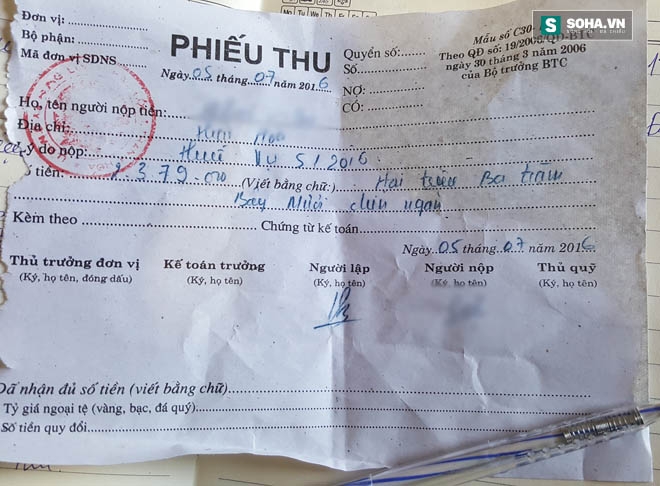 SOHA.VN
Đơn vị:
Bộ phận:
Mã đơn vị SDNS
PHIẾU THU
Ngày 05 tháng 07 năm 2016
Quyển số:
Số
NỢ:
CÓ:
Mẫu số C30-
Theo QĐ số: 19/2006/QĐ-BTC
ngày 30 tháng 3 năm 2006
của Bộ trưởng BTC
Họ, tên người nộp tiền:
Địa chỉ:
ý do nộp: Thuế Vụ 5/2016
tiền: 2379.000 (Viết bằng chữ): Hai triệu Ba trăm
Bảy Mươi chín ngàn
Kèm theo Chứng từ kế toán:
Ngày 05 tháng 07 năm 2016
Thủ trưởng đơn vị
(Ký, họ tên, đóng dấu)
Kế toán trưởng
(Ký, họ tên)
Người lập
(Ký, họ tên)
Người nộp
(Ký, họ tên)
Thủ quỹ
(Ký, họ tên)
Đã nhận đủ số tiền (viết bằng chữ)
Tỷ giá ngoại tệ (vàng, bạc, đá quý)
Số tiền quy đổi